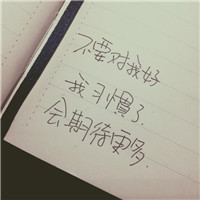 不要对我好
我习慣了
会期待更多.